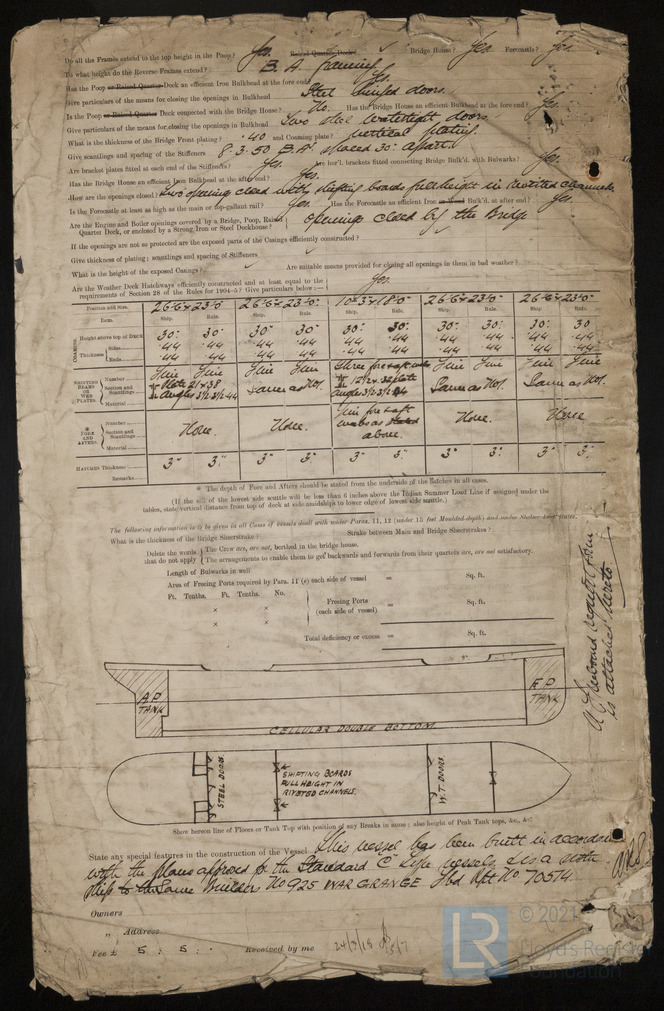 Do all the Frames extend to the top height in the Poop? Yes. Raised Quarter Deck? Bridge House? Yes Forecastle? Yes.
To what height do the Reverse Frames extend? B. A. framing
Has the Poop or Raised Quarter Deck an efficient Iron Bulkhead at the fore end? Yes.
Give particulars of the means for closing the openings in Bulkhead Steel hinged doors.
Is the Poop or Raised Quarter Deck connected with the Bridge House? No. Has the Bridge House an efficient Bulkhead at the fore end? Yes
Give particulars of the means for closing the openings in Bulkhead Two steel watertight doors
What is the thickness of the Bridge Front plating? .40 and Coaming plate? vertical plating
Give scantlings and spacing of the Stiffeners 8.3.50 B.A. spaced 30" apart.
Are bracket plates fitted at each end of the Stiffeners? Yes. Are hor'l. brackets fitted connecting Bridge Bulk'd. with Bulwarks? Yes.
Has the Bridge House an efficient Iron Bulkhead at the after end? Yes.
How are the openings closed? Two opening closed with shifting boards full height in riveted channels
Is the Forecastle at least as high as the main or top-gallant rail? Yes. Has the Forecastle an efficient Iron or Wood Bulk'd. at after end? Yes.
Are the Engine and Boiler openings covered by a Bridge, Poop, Raised
Quarter Deck, or enclosed by a Strong Iron or Steel Deckhouse? Openings closed by the Bridge
If the openings are not so protected are the exposed parts of the Casings efficiently constructed?
Give thickness of plating; scantlings and spacing of Stiffeners
What is the height of the exposed Casings? Are suitable means provided for closing all openings in them in bad weather?
Are the Weather Deck Hatchways efficiently constructed and at least equal to the
requirements of Section 28 of the Rules for 1904-5? Give particulars below:— Yes.
Position and Size. 26'6"x23'0" 26'6"x23'0" 10'3"x18'0" 26'6"x23'0" 26'6"x23'0"
Item. Ship. Rule. Ship. Rule. Ship. Rule. Ship. Rule. Ship. Rule.
COAMING Height above top of DECK 30" 30" 30" 30" 30" 30" 30" 30" 30" 30"
Thickness Sides .44 .44 .44 .44 .44 .44 .44 .44 .44 .44
Ends .44 .44 .44 .44 .44 .44 .44 .44 .44 .44
SHIFTING BEAMS OR WEB PLATES. Number
Section and Scantlings Plate 21 x 38 Same as No1. 12½ x 32 plate Same as No1. Same as No1.
Angles 3½ 3½ 44
Material
FORE AND AFTERS. Number
Section and Scantlings None. None. fore & aft webs as above. None. None
Material
HATCHES Thickness 3" 3" 3" 3" 3" 3" 3" 3" 3" 3"
Remarks
* The depth of Fore and Afters should be stated from the underside of the hatches in all cases.
(If the sill of the lowest side scuttle will be less than 6 inches above the Indian Summer Load Line if assigned under the
tables, state vertical distance from top of deck at side amidships to lower edge of lowest side scuttle.)
The following information is to be given in all Cases of vessels dealt with under Paras. 11, 12 (under 15 feet Moulded depth) and under Shelter deck
What is the thickness of the Bridge Sheerstrake? Strake between Main and Bridge Sheerstrakes?
Delete the words The Crew are, are not, berthed in the bridge house.
that do not apply The arrangements to enable them to get backwards and forwards from their quarters are, are not satisfactory.
Length of Bulwarks in well
Area of Freeing Ports required by Para. 11 (e) each side of vessel = Sq. ft.
Ft. Tenths. Ft. Tenths. No.
x x Freeing Ports = Sq. ft.
x x (each side of vessel)
Total deficiency or excess = Sq. ft.
is attached hereto
A P TANK
F P TANK
CELLULAR DOUBLE BOTTOM
STEEL DOORS
SHIFTING BOARDS
FULL HEIGHT IN
RIVETED CHANNELS.
W.T. DOORS
Show hereon line of Floors or Tank Top with position of any Breaks in same; also height of Peak Tank tops, &c., &c.
State any special features in the construction of the Vessel This vessel has been built in accordance
with the plans approved for the Standard "C" type vessels, & is a sister
ship to the same Builders No 925 WAR GRANGE Hbd. Rpt No 70574.
Owners
" Address
Fee £ 5 : 5 : Received by me 24/7/18
LR © 2021
Lloyd's Register
Foundation